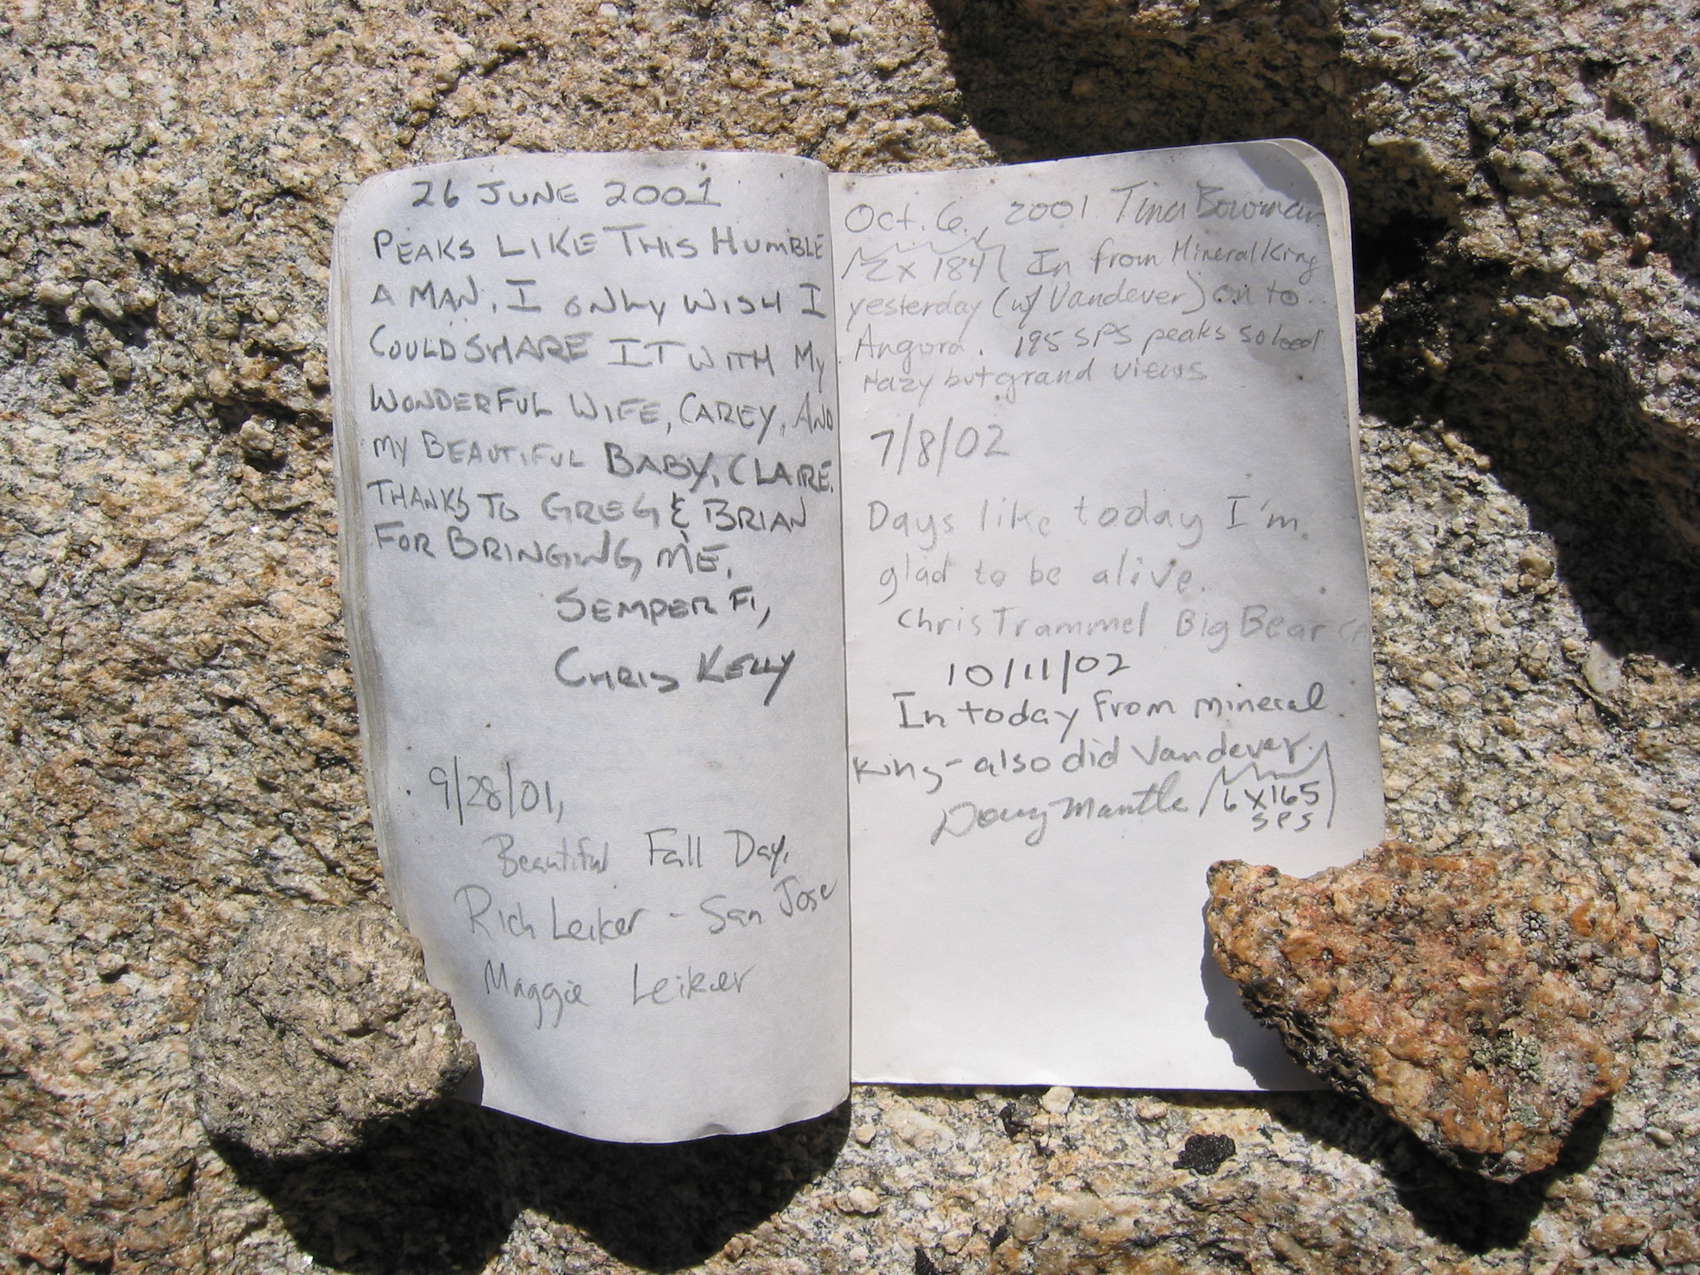 26 JUNE 2001
PEAKS LIKE THIS HUMBLE
A MAN. I ONLY WISH I
COULD SHARE IT WITH MY
WONDERFUL WIFE, CAREY, AND
MY BEAUTIFUL BABY, CLAIRE.
THANKS TO GREG & BRIAN
FOR BRINGING ME.
SEMPER FI,
CHRIS KELLY
9/28/01,
Beautiful Fall Day.
Rich Leiker - San Jose
Maggie Leiker
Oct. 6, 2001 Tina Bowman
2 x 184 In from Mineral King
yesterday (w/ Vandever) on to
Angora. 195 SPS peaks soloed
Hazy but grand views
7/8/02
Days like today I'm
glad to be alive.
Chris Trammel Big Bear CA
10/11/02
In today from mineral
King - also did Vandever.
Doug Mantle 6 x 165
SPS